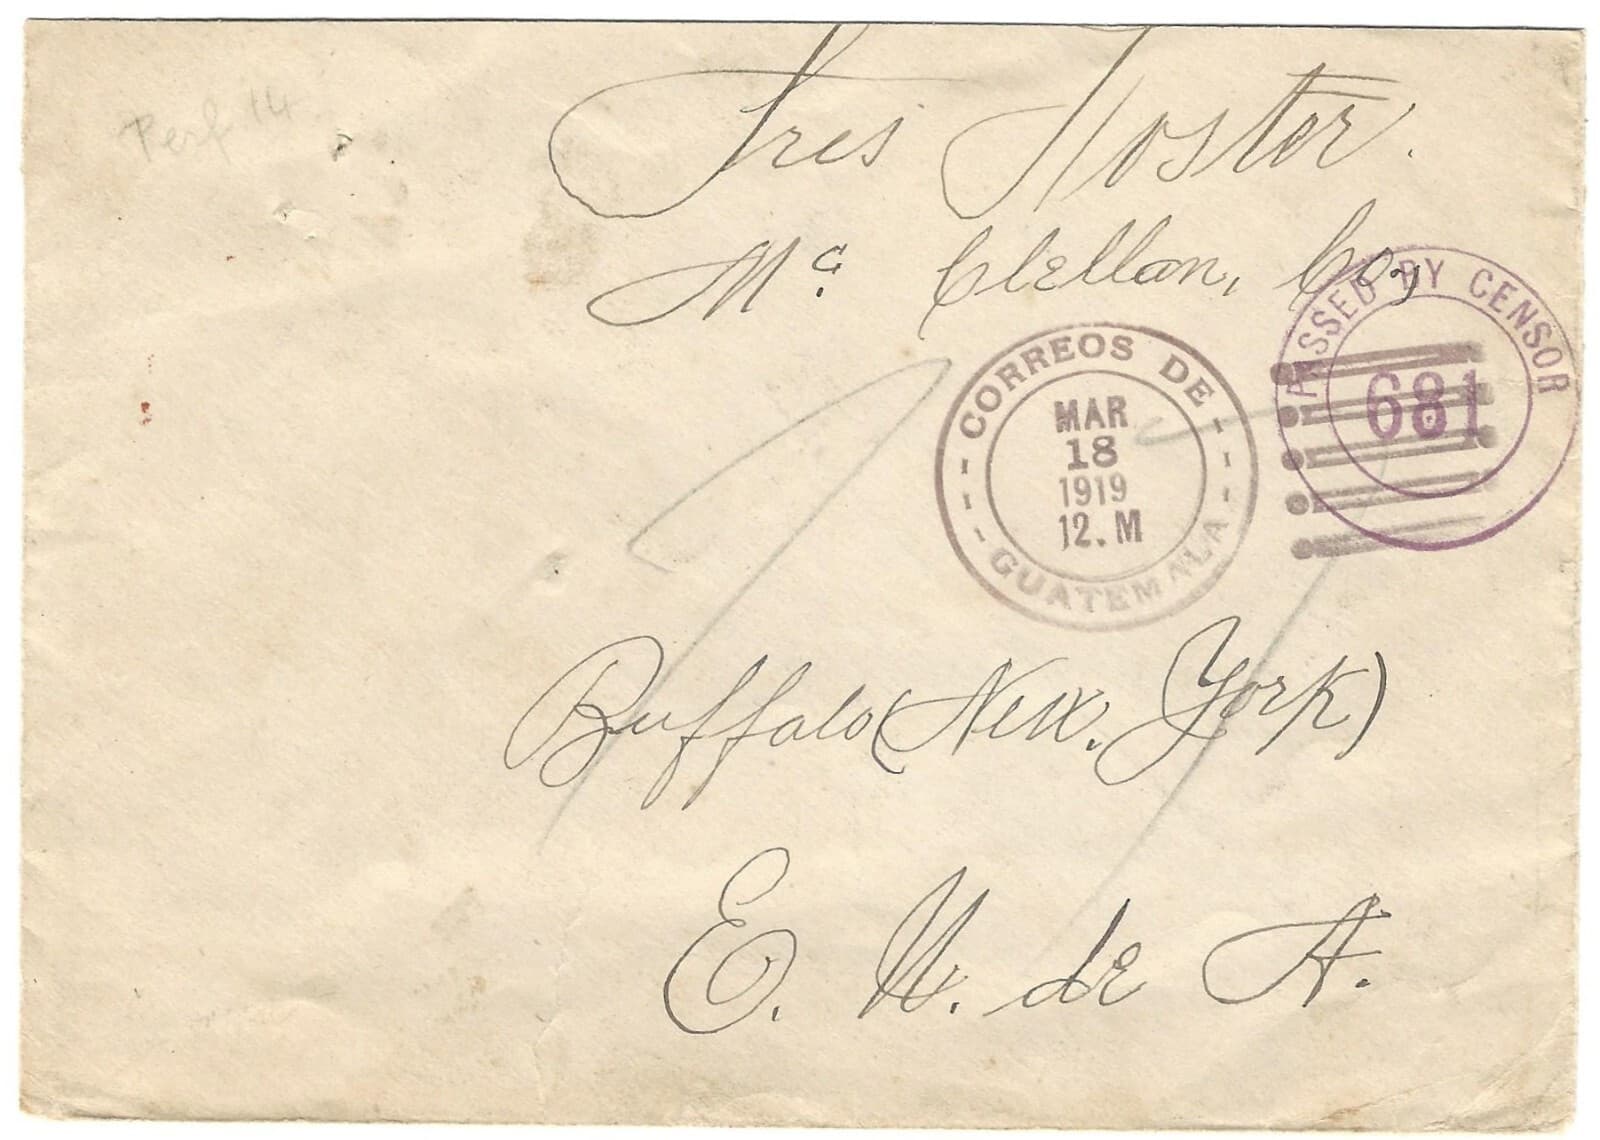 Perf 14
Tres Koster.
Mc. Clellan, Co,
PASSED BY CENSOR
681
CORREOS DE
MAR
18
1919
12. M
GUATEMALA
Buffalo (New. York)
E. U. de A.